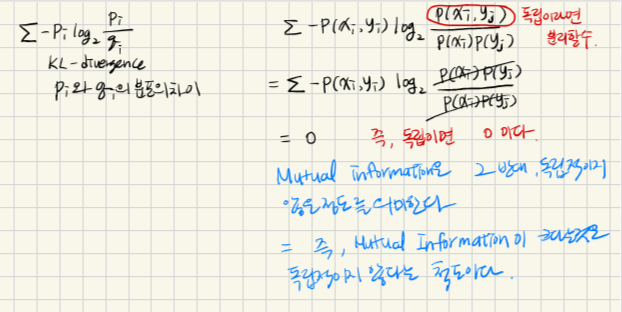 Σ -Pᵢ log₂ Pᵢ/qᵢ
KL-divergence
Pᵢ와 qᵢ의 분포의 차이
Σ -P(xᵢ,yᵢ) log₂ P(xᵢ,yⱼ)/P(xᵢ)P(yⱼ) 독립이라면
분리할수.
= Σ -P(xᵢ,yᵢ) log₂ P(xᵢ)P(yⱼ)/P(xᵢ)P(yⱼ)
= 0 즉, 독립이면 0 이다.
Mutual Information은 그 반대, 독립적이지
않은 정도를 의미한다
= 즉, Mutual Information이 크다는것은
독립적이지 않다는 척도이다.